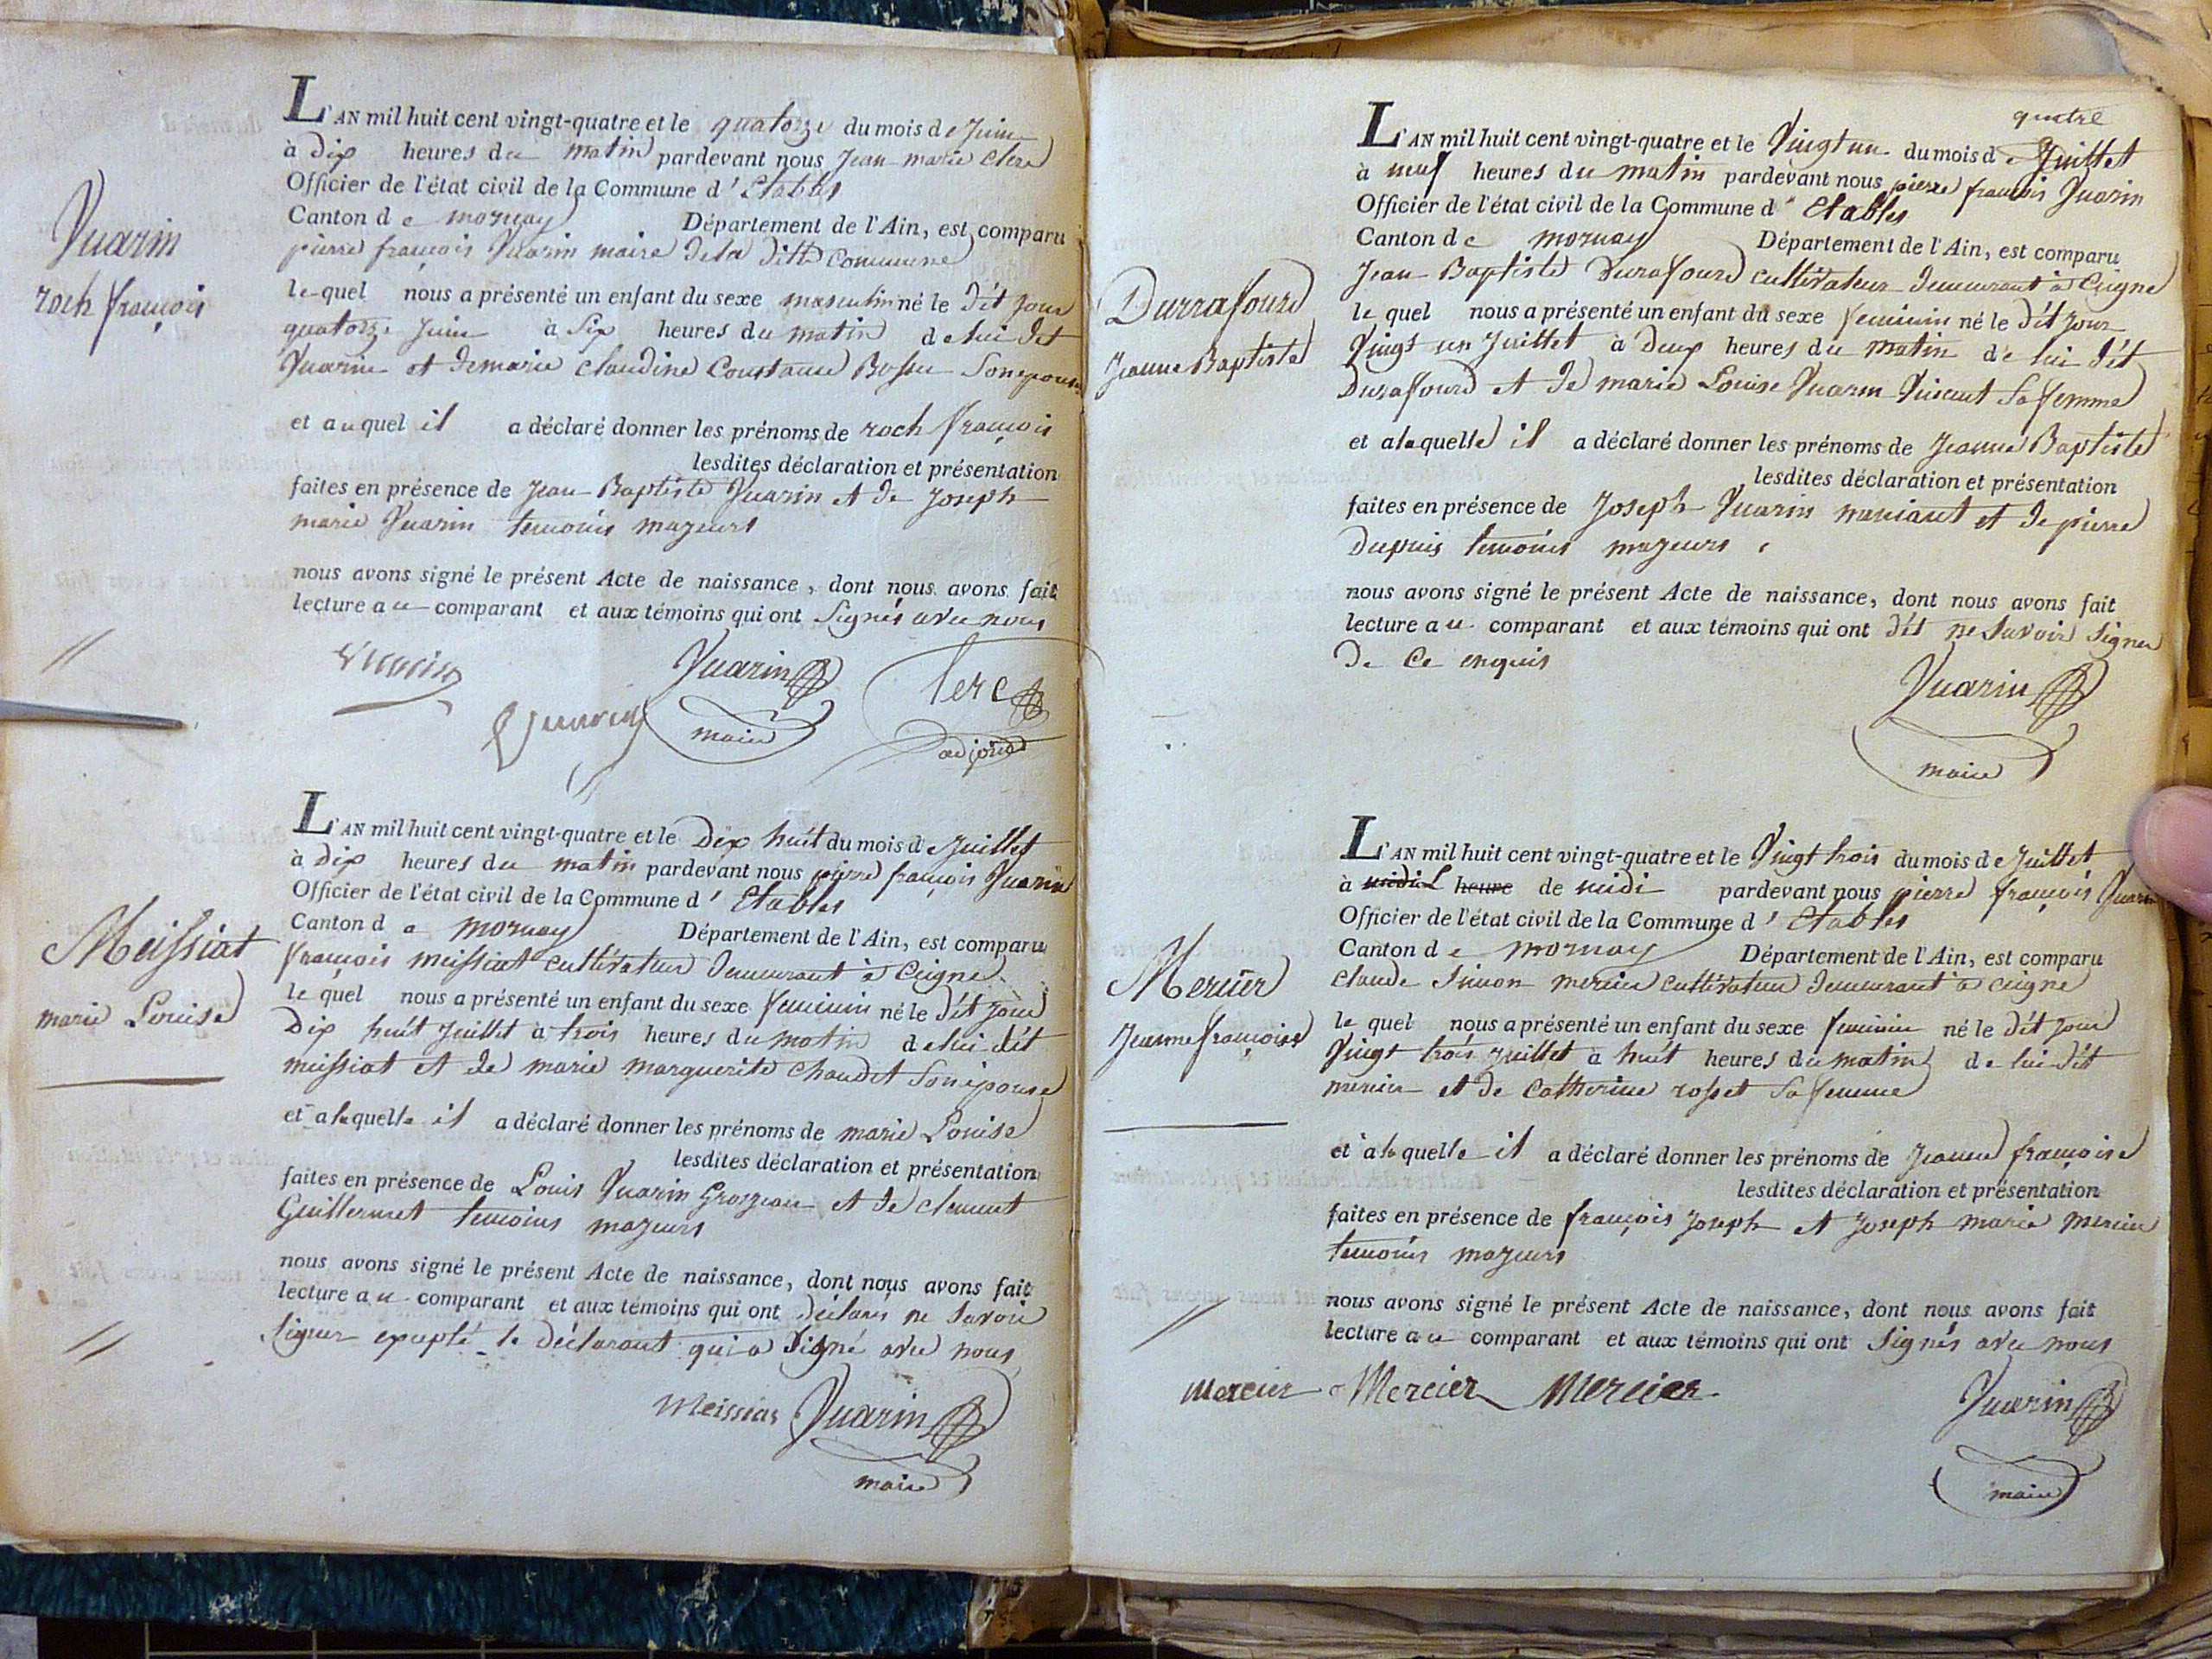 Vuarin
roch françois
L'AN mil huit cent vingt-quatre et le quatorze du mois de Juin
à dix heures du matin pardevant nous Jean marie clerc
Officier de l'état civil de la Commune d'Etables
Canton de mornay Département de l'Ain, est comparu
pierre françois Vuarin maire de la ditte commune
lequel nous a présenté un enfant du sexe masculin né le dit jour
quatorze Juin à six heures du matin de lui dit
Vuarin et de marie claudine Constance Bossu son epouse
et auquel il a déclaré donner les prénoms de roch françois
lesdites déclaration et présentation
faites en présence de Jean Baptiste Vuarin et de Joseph
marie Vuarin temoins majeurs
nous avons signé le présent Acte de naissance, dont nous avons fait
lecture au comparant et aux témoins qui ont signés avec nous
Vuarin
Vuarin
Vuarin
maire
Clerc
adjoint
Meissiat
marie Louise
L'AN mil huit cent vingt-quatre et le Dix huit du mois de Juillet
à dix heures du matin pardevant nous pierre françois Vuarin
Officier de l'état civil de la Commune d'Etables
Canton de mornay Département de l'Ain, est comparu
françois meissiat cultivateur demeurant à Ceigne
le quel nous a présenté un enfant du sexe feminin né le dit jour
Dix huit Juillet à trois heures du matin de lui dit
meissiat et de marie marguerite chaudet son épouse
et a laquelle il a déclaré donner les prénoms de marie Louise
lesdites déclaration et présentation
faites en présence de Louis Vuarin Grosjean et de clement
Guillermet temoins majeurs
nous avons signé le présent Acte de naissance, dont nous avons fait
lecture au comparant et aux témoins qui ont déclarés ne savoir
signer excepté le déclarant qui a signé avec nous
Meissiat Vuarin
maire
quatre
Durrafourd
Jeanne Baptiste
L'AN mil huit cent vingt-quatre et le Vingt un du mois de Juillet
à neuf heures du matin pardevant nous pierre françois Vuarin
Officier de l'état civil de la Commune d'Etables
Canton de mornay Département de l'Ain, est comparu
Jean Baptiste Durafourd cultivateur demeurant à Ceigne
le quel nous a présenté un enfant du sexe feminin né le dit jour
Vingt un Juillet à deux heures du matin de lui dit
Durafourd et de marie Louise Vuarin Vincent sa femme
et a laquelle il a déclaré donner les prénoms de Jeanne Baptiste
lesdites déclaration et présentation
faites en présence de Joseph Vuarin et de pierre
Dupuis temoins majeurs
nous avons signé le présent Acte de naissance, dont nous avons fait
lecture au comparant et aux témoins qui ont dit ne savoir signer
de ce enquis
Vuarin
maire
Mercier
Jeanne françoise
L'AN mil huit cent vingt-quatre et le Vingt trois du mois de Juillet
à midi heure de midi pardevant nous pierre françois Vuarin
Officier de l'état civil de la Commune d'Etables
Canton de mornay Département de l'Ain, est comparu
claude Simon mercier cultivateur demeurant à ceigne
le quel nous a présenté un enfant du sexe feminin né le dit jour
Vingt trois Juillet à huit heures du matin de lui dit
mercier et de Catherine rosset sa femme
et a la quelle il a déclaré donner les prénoms de Jeanne françoise
lesdites déclaration et présentation
faites en présence de françois Joseph et Joseph marie mercier
temoins majeurs
nous avons signé le présent Acte de naissance, dont nous avons fait
lecture au comparant et aux témoins qui ont signés avec nous
Mercier Mercier Mercier Vuarin
maire